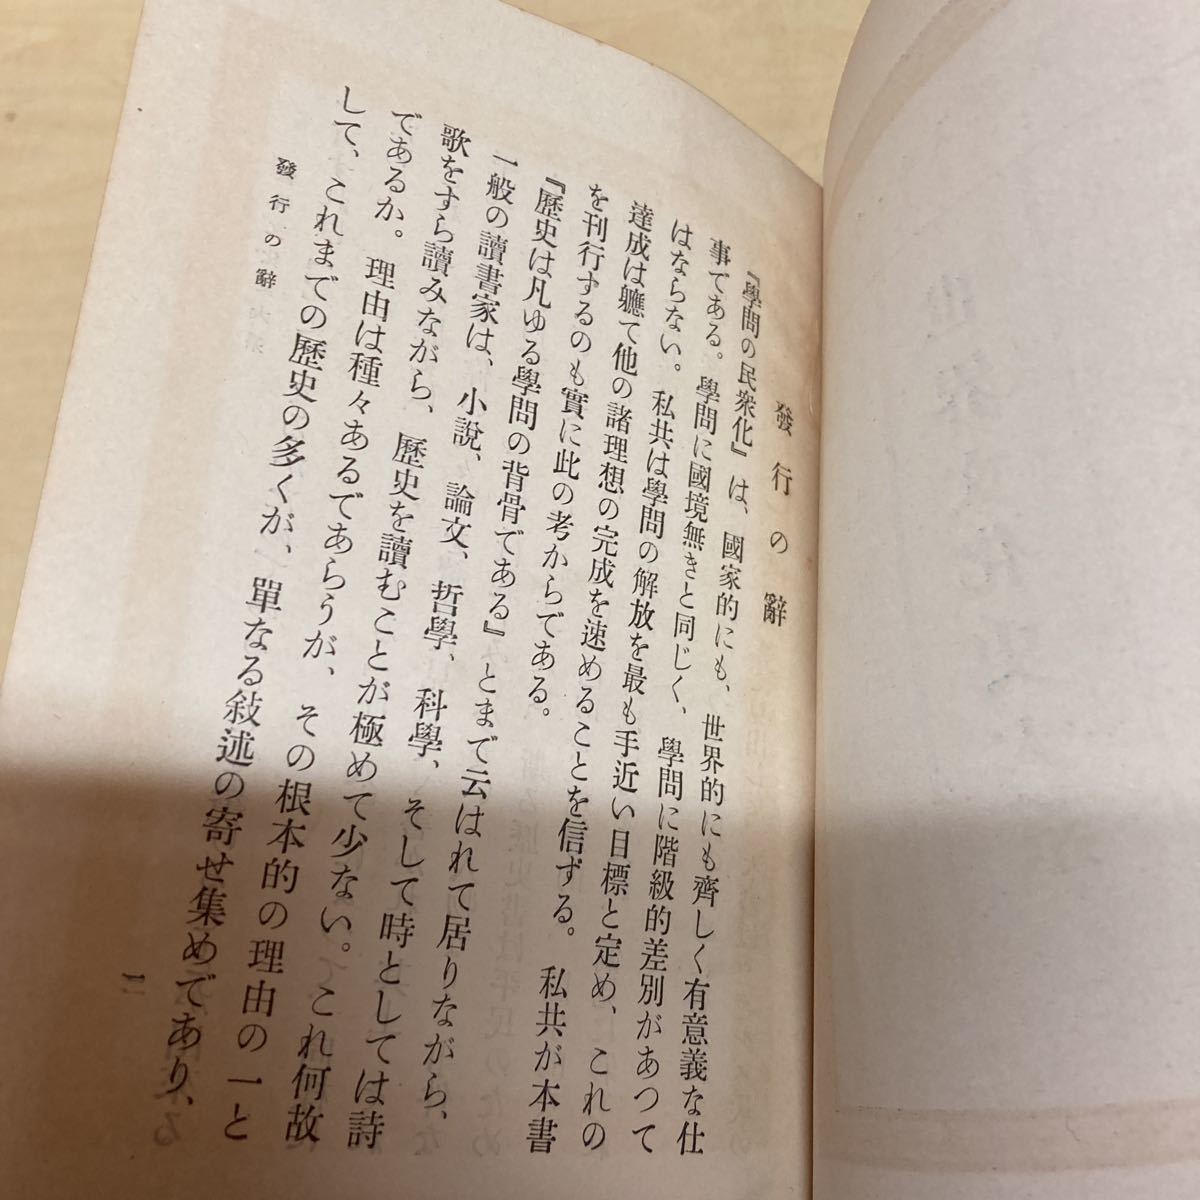 發行の辭
『學問の民衆化』は、國家的にも、世界的にも齊しく有意義な仕
事である。學問に國境無きと同じく、學問に階級的差別があつて
はならない。私共は學問の解放を最も手近い目標と定め、これの
達成は軈て他の諸理想の完成を速めることを信ずる。私共が本書
を刊行するのも實に此の考からである。
『歷史は凡ゆる學問の背骨である』とまで云はれて居りながら、
一般の讀書家は、小說、論文、哲學、科學、そして時としては詩
歌をすら讀みながら、歷史を讀むことが極めて少ない。これ何故
であるか。理由は種々あるであらうが、その根本的の理由の一と
して、これまでの歷史の多くが、單なる敍述の寄せ集めであり、
發行の辭